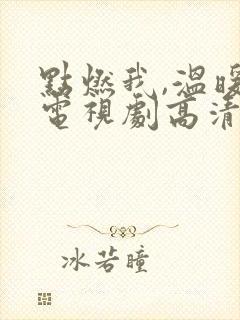 點燃我,溫暖
電視劇高清
冰若瞳